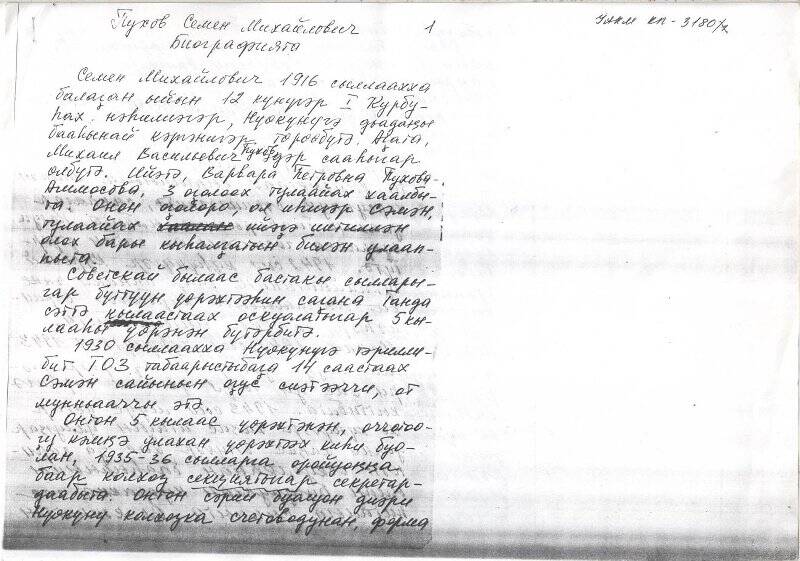 Пухов Семен Михайлович 1
УЛКМ КП-3180/
Биографията
Семен Михайлович 1916 сыллаахха
балаҕан ыйын 12 күнүгэр I Курбу-
һах нэһилиэгэр, Нуокунуҕэ дьадаҥы
бааһынай кэргэнигэр төрөөбүтэ. Аҕата,
Михаил Васильевич Пухов эдэр сааһыгар
өлбүтэ. Ийэтэ, Варвара Петровна Пухова-
Аммосова, 3 оҕолоох тулаайах хаалбы-
та. Онон оҕолоро, ол иһигэр Сэмэн,
тулаайах ийэҕэ иитиллэн
олох барыс кыһалҕатын билэн улаап-
пыта.
Советскай былаас бастакы сыллары-
гар бүттүүн үөрэхтээһин саҕана Танда
сэттэ кылаастаах оскуолатыгар 5 кы-
лааһы үөрэнэн бүтэрбитэ.
1930 сыллаахха Нуокунуҕэ тэрилли-
бит ТОЗ табаарыстыбаҕа 14 саастаах
Сэмэн сайынын оҕус сиэтээччи, от
мунньааччы этэ.
Онтон 5 кылаас үөрэхтэнэн, оччотоо-
ҕу кэмҥэ улахан үөрэхтээх киһи буо-
лан, 1935-36 сылларга оройуоҥҥа
баар колхоз секциятыгар секретар-
даабыта. Онтон сэрии буолуон диэри
Нуокуну колхозка счетоводунан, ферма